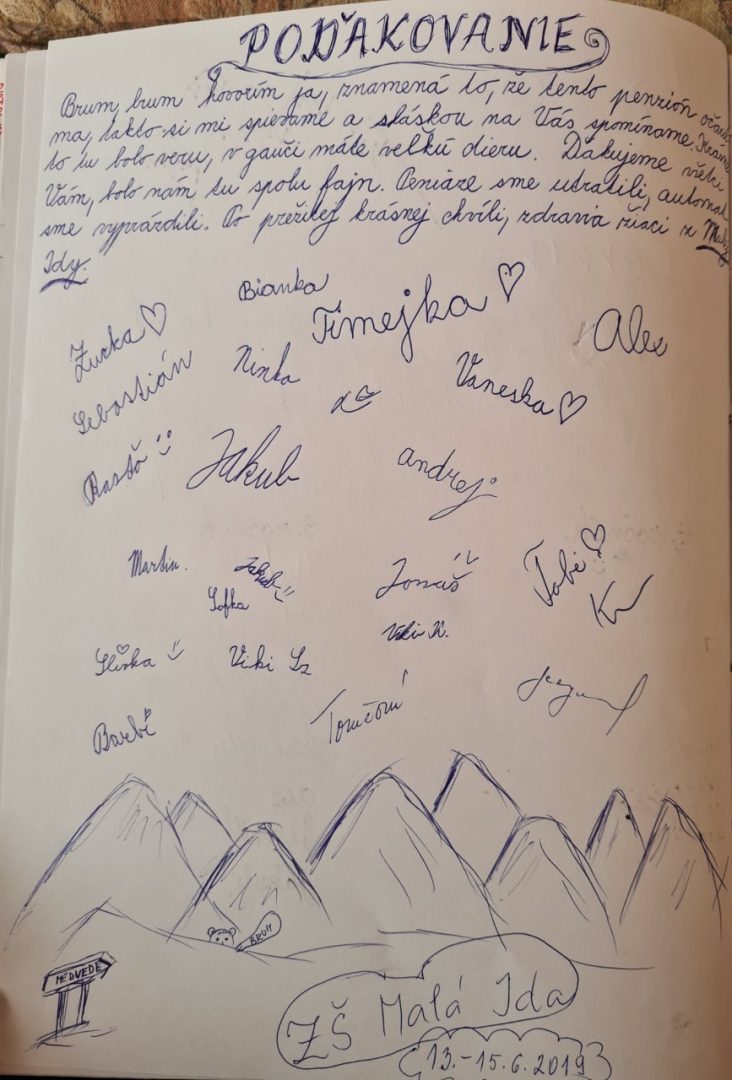 POĎAKOVANIE
Brum, brum hovorím ja, znamená to, že tento penzión očaril
ma, takto si mi spievame a s láskou na Vás spomíname. Krásne
to tu bolo veru, v gauči máte velkú dieru. Ďakujeme všetci
Vám, bolo nám tu spolu fajn. Peniaze sme utratili, automat
sme vyprázdili. Po prežitej krásnej chvíli, zdravia žiaci z Malej
Idy.
Bianka
Zurka Timejka Alex
Sebastián Ninka Vaneska
Rasťo Jakub Andrej
Martin. Jakub Jonáš Tobi
Sofka
Slivka Viki Sz Viki K.
Barbi
MEDVEDE
BRUM
ZŠ Malá Ida
13.-15.6.2019